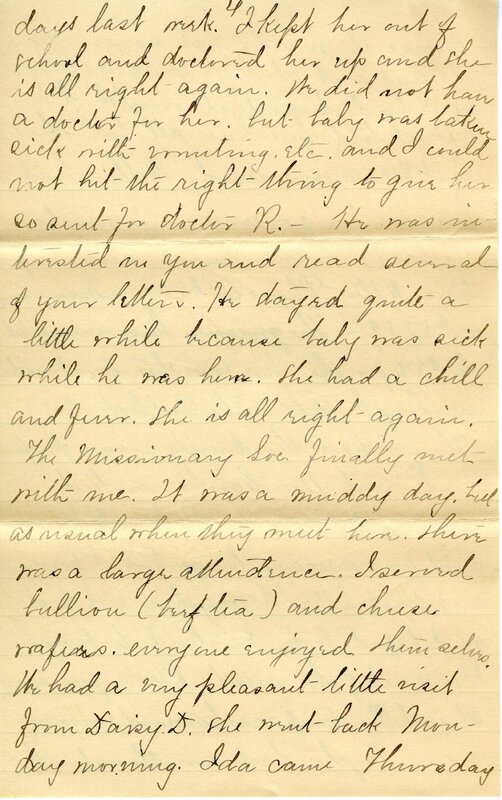 4
days last week. I kept her out of
school and doctored her up and she
is all right again. We did not have
a doctor for her. but baby was taken
sick with vomiting. etc. and I could
not hit the right thing to give her
so sent for doctor R. – He was in-
terested in you and read several
of your letters. He stayed quite a
little while because baby was sick
while he was here. She had a chill
and fever. She is all right again.
The Missionary Soc. finally met
with me. It was a muddy day, but
as usual when they meet here. there
was a large attendence. I served
bullion (beef tea) and cheese
wafers. everyone enjoyed themselves.
We had a very pleasant little visit
from Daisy D. She went back Mon-
day morning. Ida came Thursday